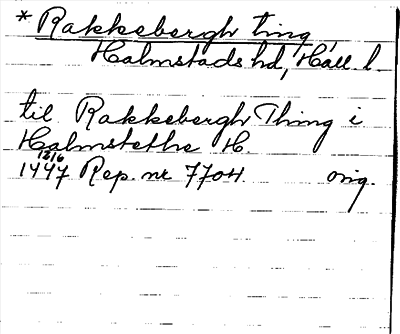 * Rakkebergh ting,
Halmstads hd, Hall. l.
til Rakkebergh Thing i
Halmstethe H.
12/6
1447 Rep. nr 7704. orig.